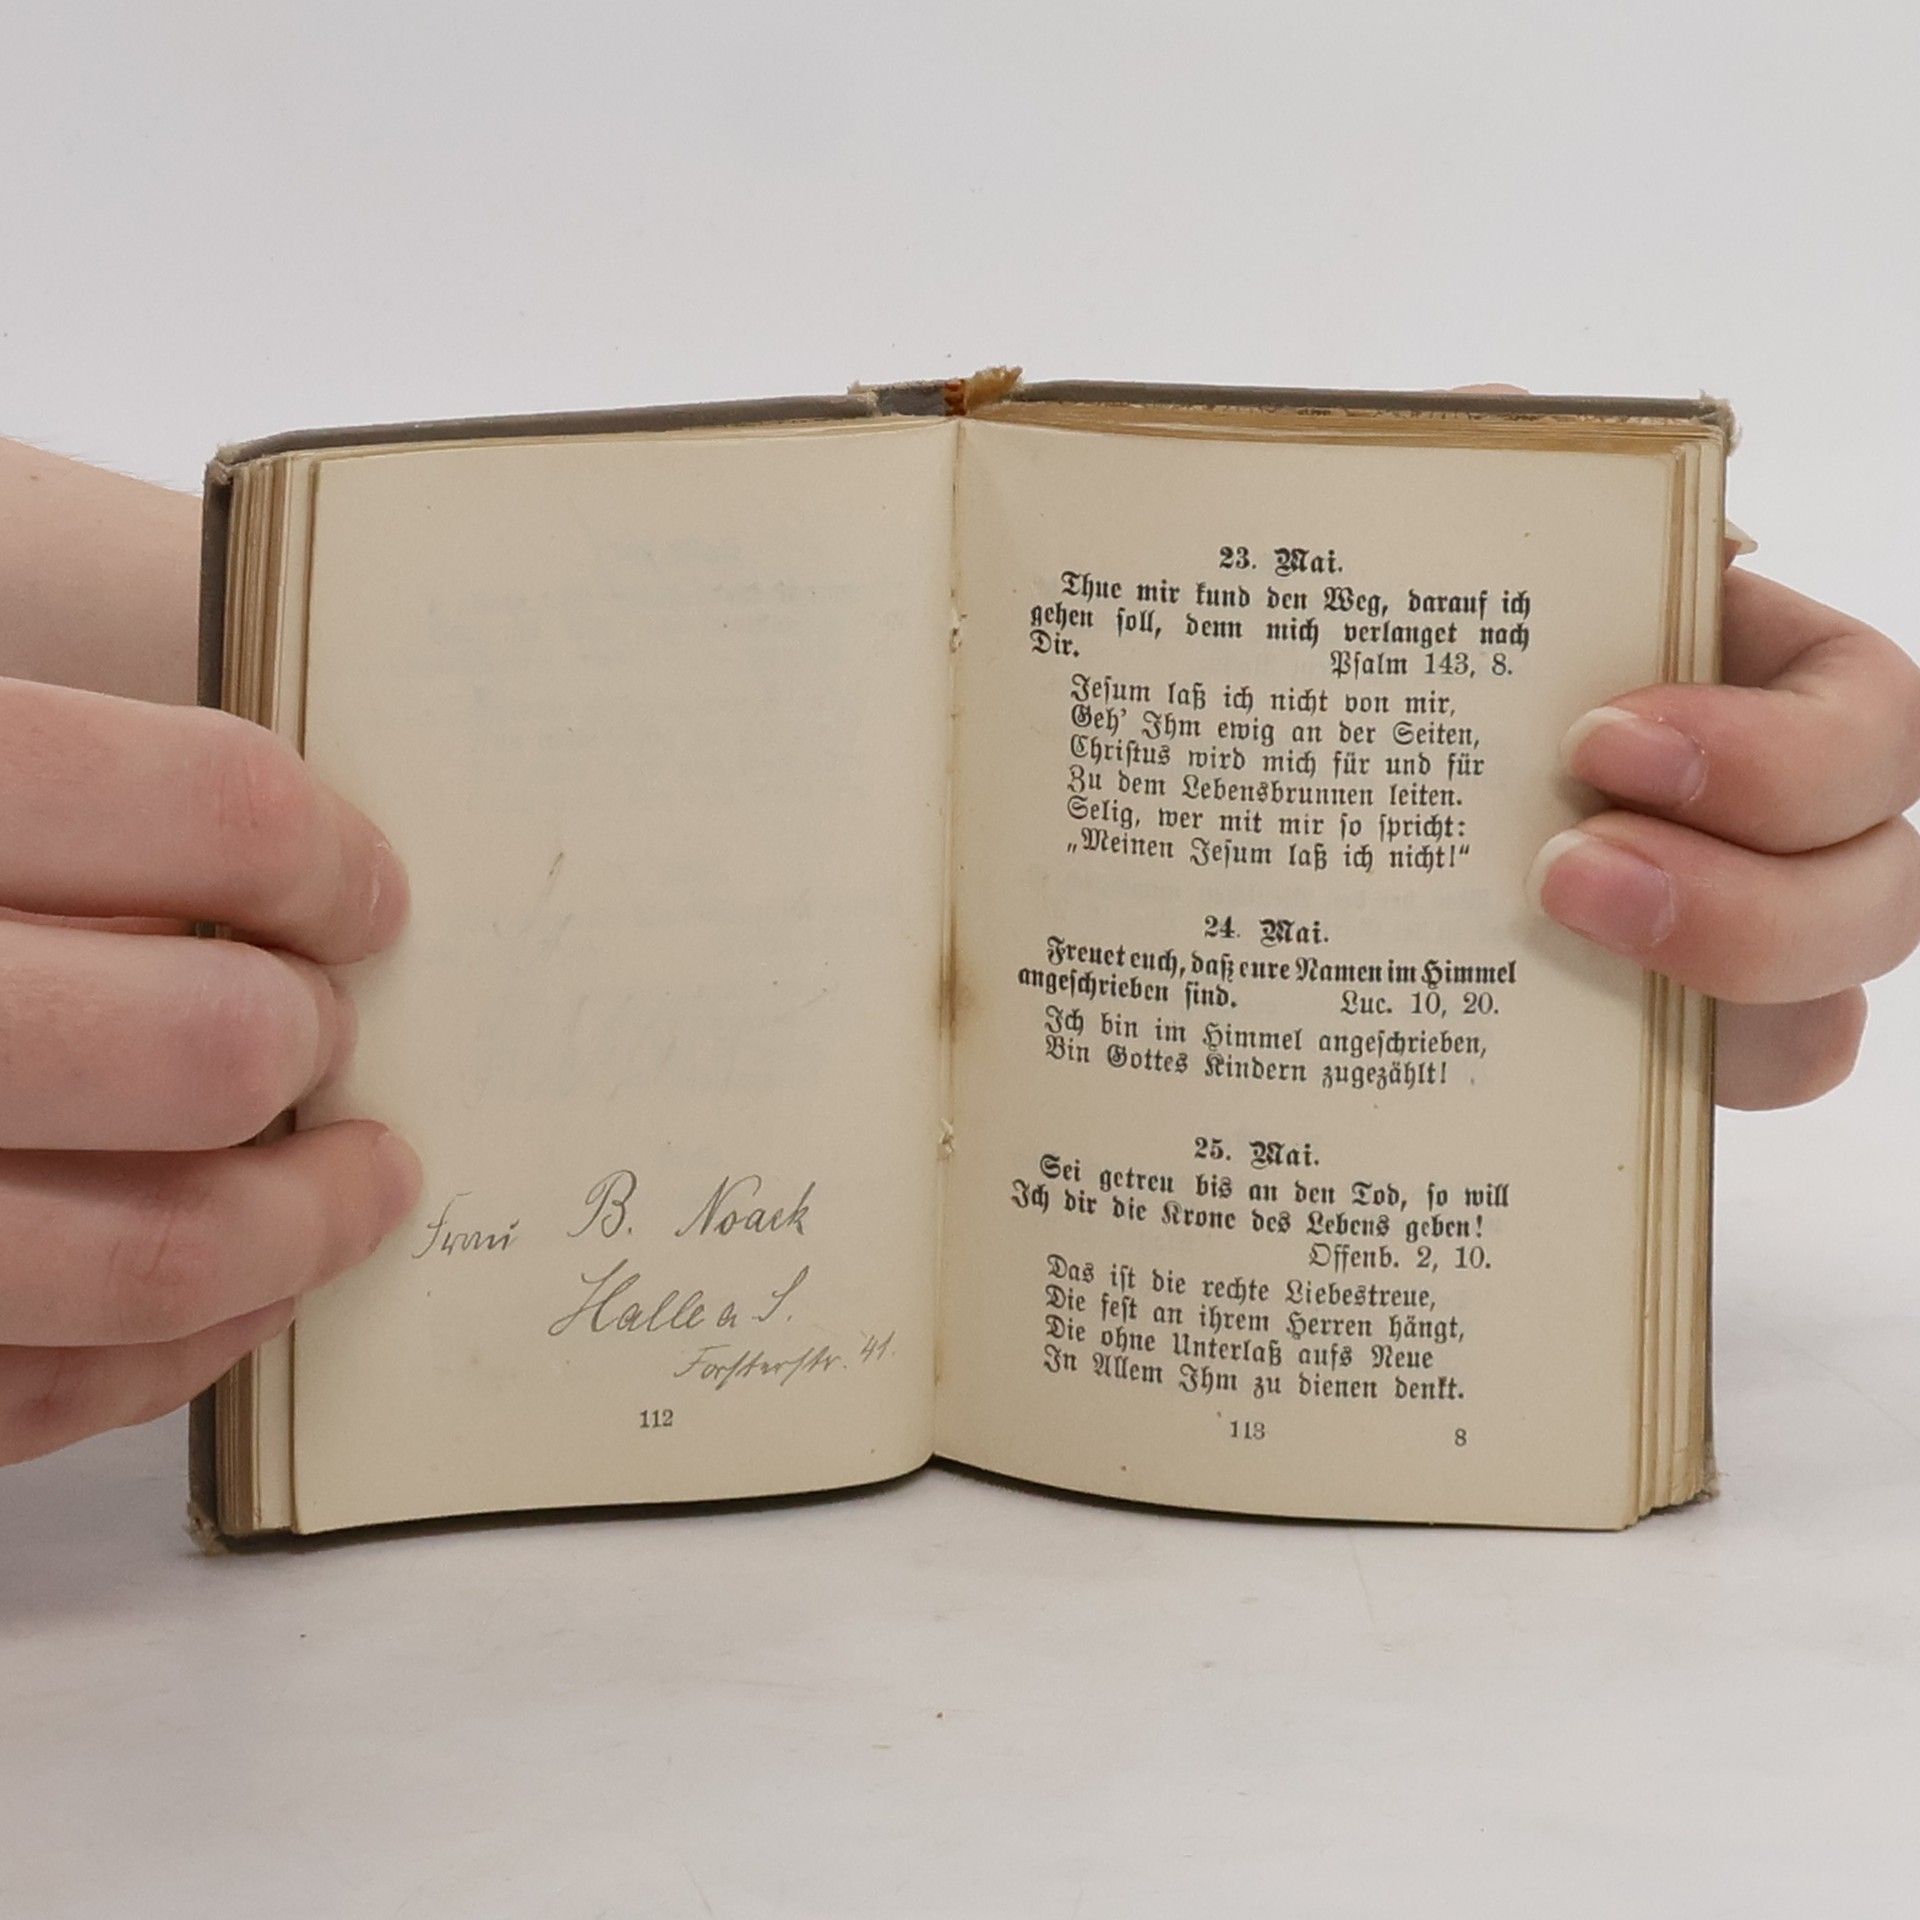 Frau B. Noack
Halle a S.
Forsterstr. 41.
112
23. Mai.
Thue mir kund den Weg, darauf ich
gehen soll, denn mich verlanget nach
Dir. Psalm 143, 8.
Jesum laß ich nicht von mir,
Geh' Ihm ewig an der Seiten,
Christus wird mich für und für
Zu dem Lebensbrunnen leiten.
Selig, wer mit mir so spricht:
„Meinen Jesum laß ich nicht!“
24. Mai.
Freuet euch, daß eure Namen im Himmel
angeschrieben sind. Luc. 10, 20.
Ich bin im Himmel angeschrieben,
Bin Gottes Kindern zugezählt!
25. Mai.
Sei getreu bis an den Tod, so will
Ich dir die Krone des Lebens geben!
Offenb. 2, 10.
Das ist die rechte Liebestreue,
Die fest an ihrem Herren hängt,
Die ohne Unterlaß aufs Neue
In Allem Ihm zu dienen denkt.
113 8